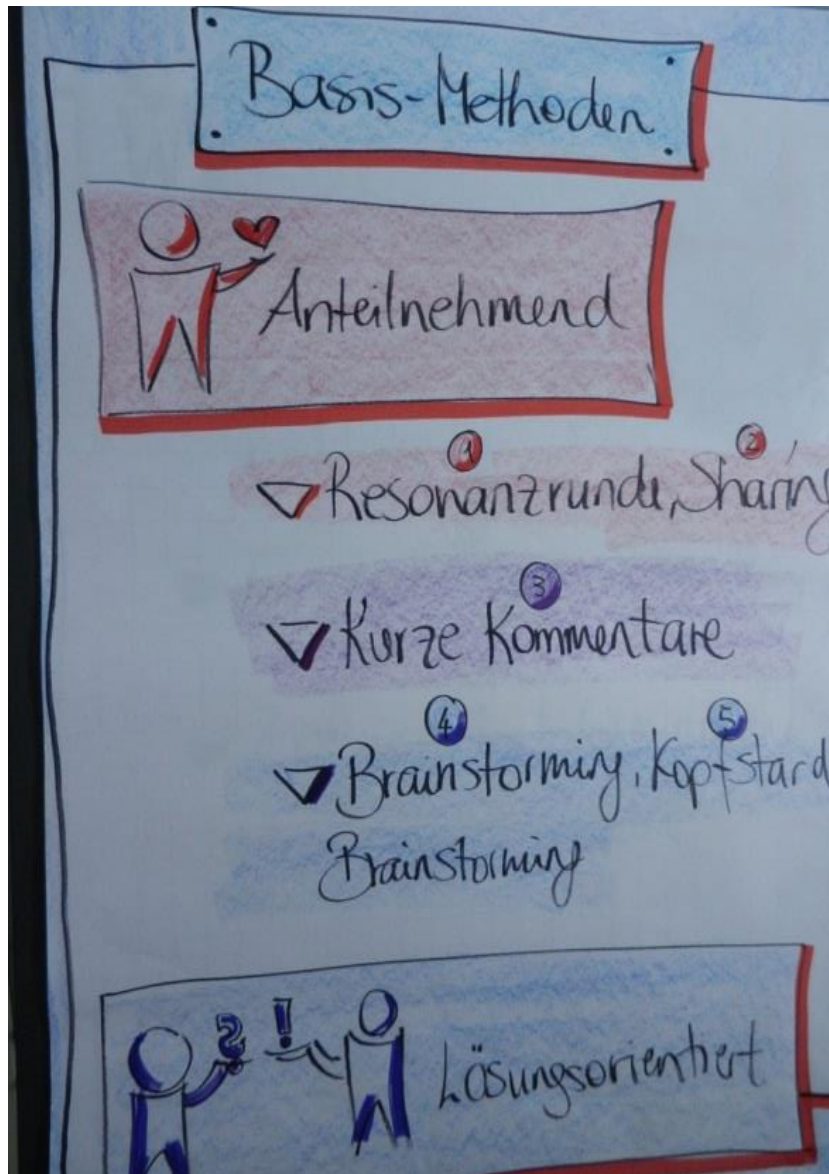 Basis-Methoden
Anteilnehmend
1 2
Resonanzrunde, Sharing
3
Kurze Kommentare
4 5
Brainstorming, Kopfstand
Brainstorming
? !
Lösungsorientiert